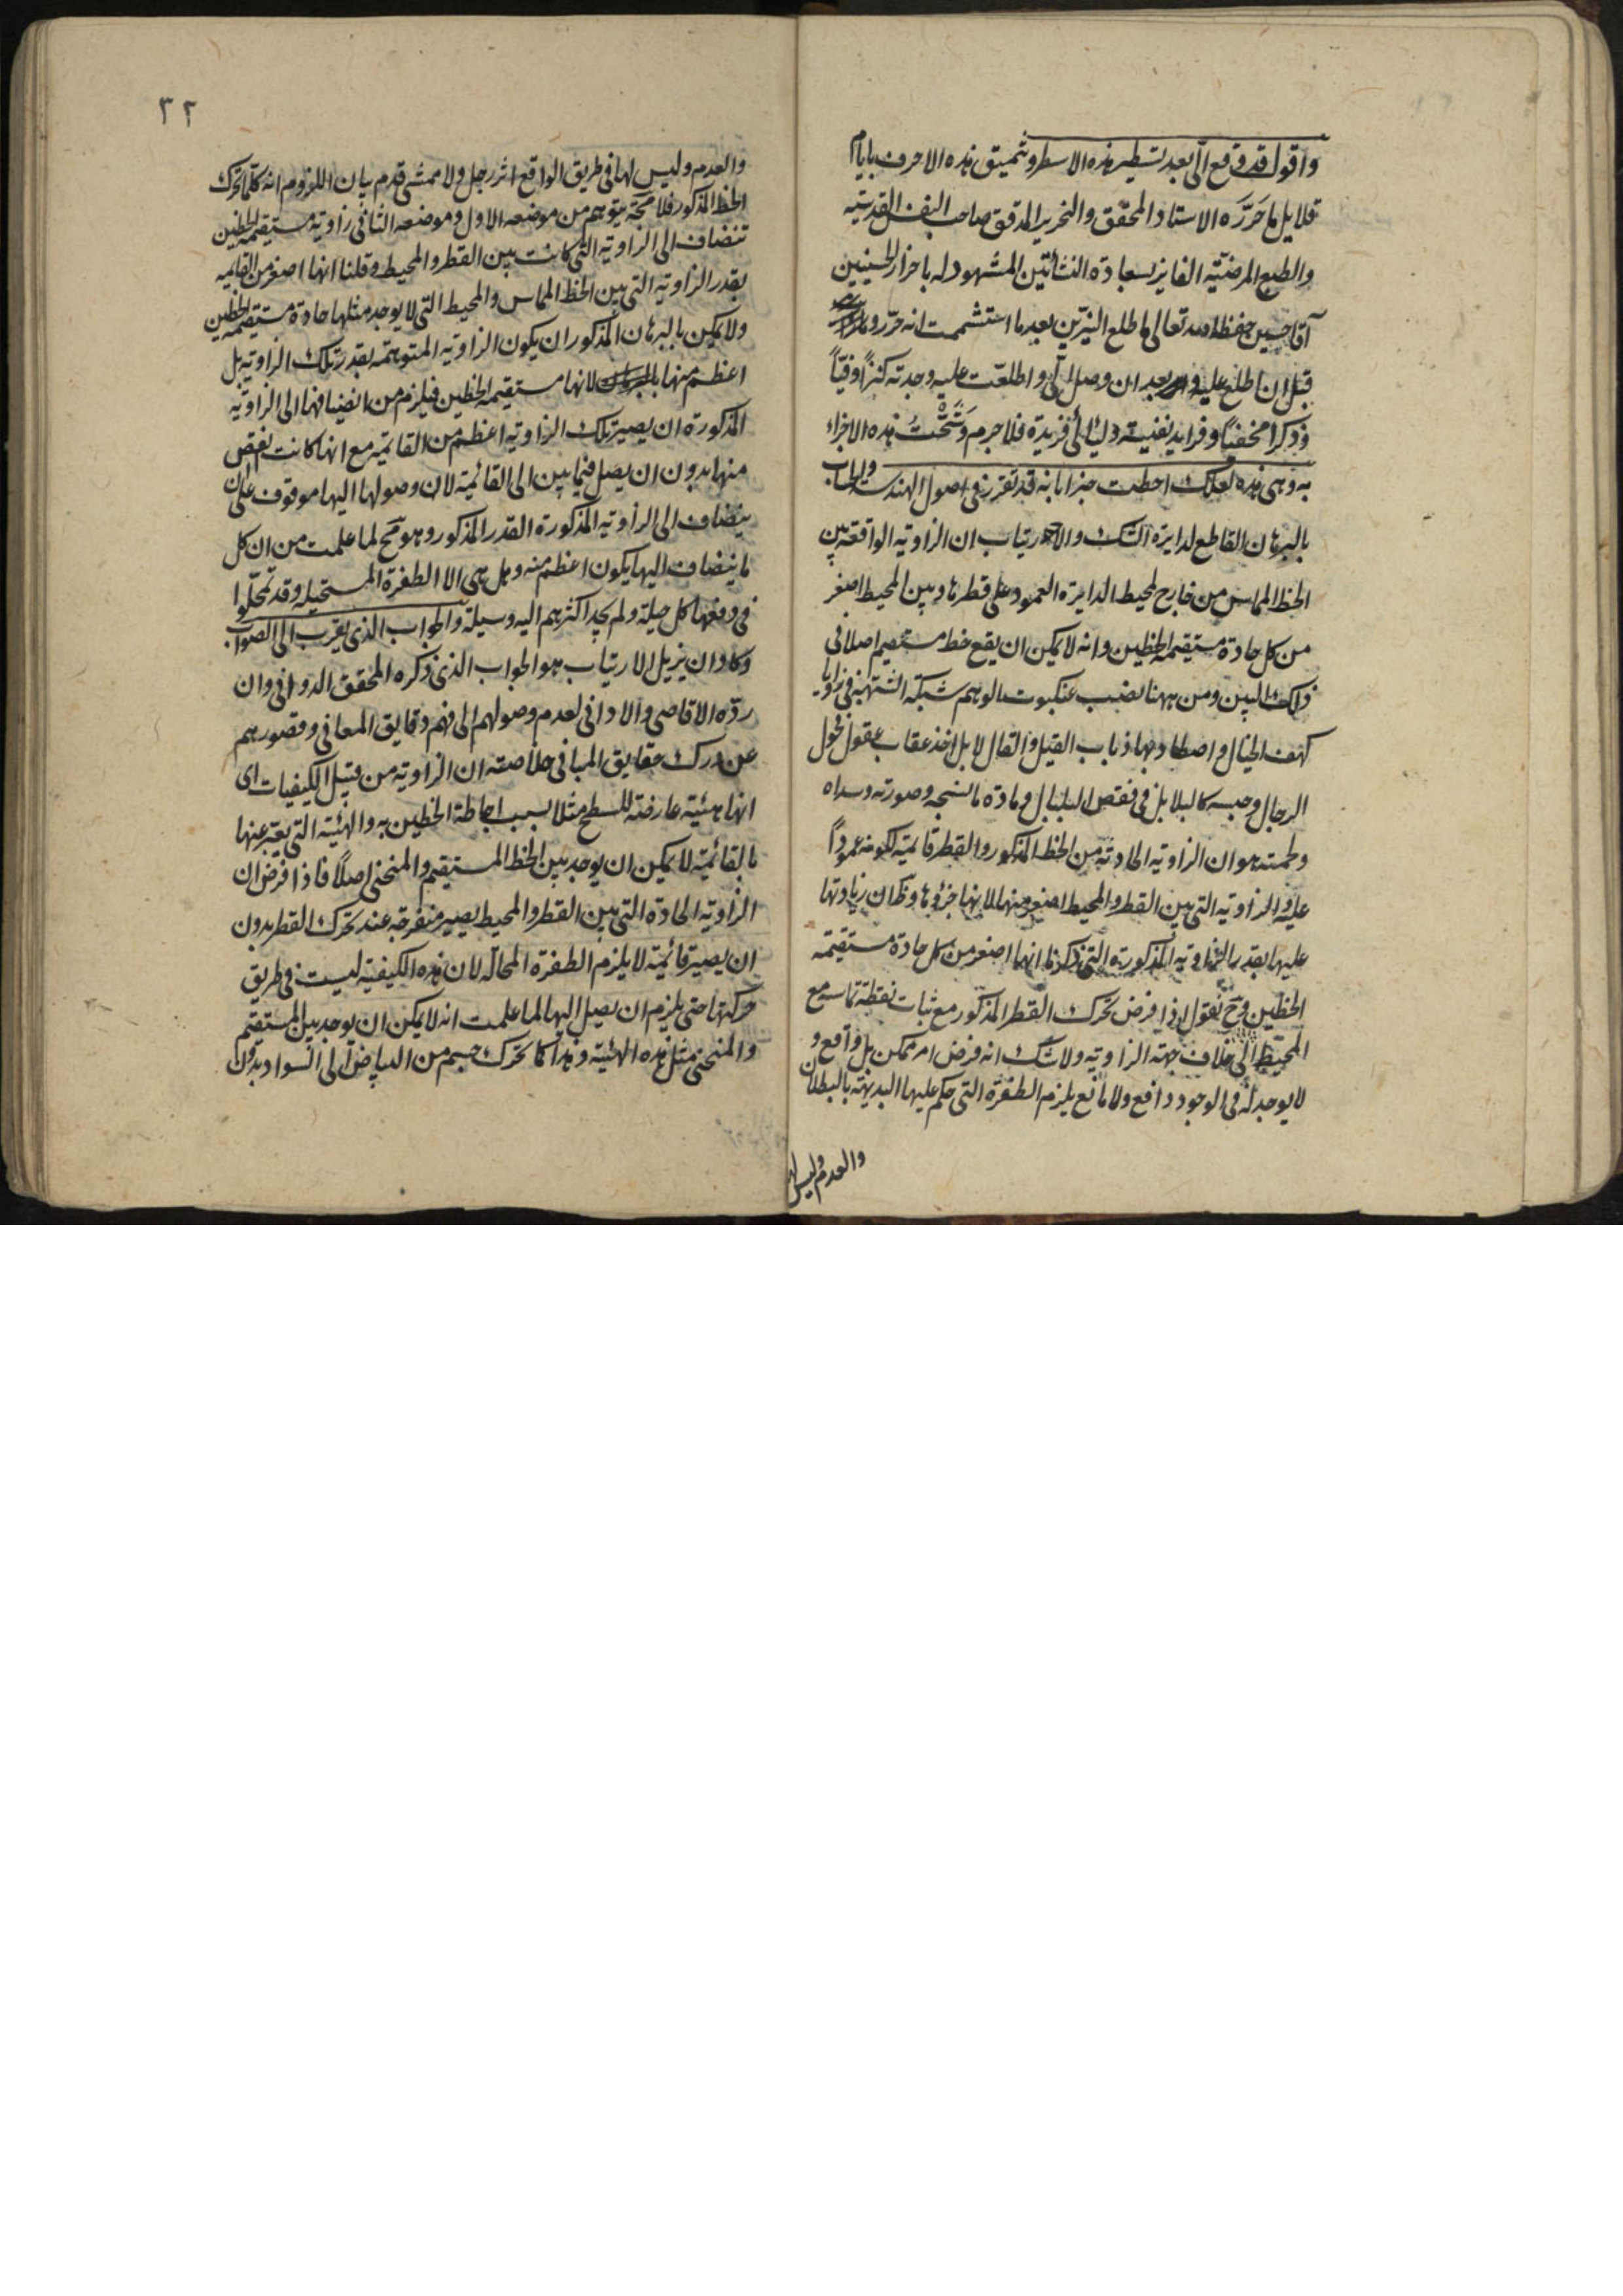 واقول قد وقع الیّ بعد تسطیر هذه الاسطر و تنمیق هذه الاحرف بایام
قلایل ما حَرَّرَه الاستاد المحقق والنحریر المدقق صاحب النفس القدسیّه
والطبع المرضیّه الفایز بسعادة النشأتین المشهود له باحراز الحسنیین
آقا حسین حفظه الله تعالی ما طلع النیّرین بعد ما استشممت انه حرّر
قبل ان اطلع علیه وبعد ان وصل الیّ و اطلعت علیه وجدته کنزاً وفیّاً
وذکرا مخفیاً و فراید نفیسة و لئالی فریدة فلا جرم وَشَّحْتُ هذه الاجزاء
به وهی هذه لعلک احطت خبرا بانه قد تقرر فی اصول الهندسه والحساب
بالبرهان القاطع لدایرة الشک والارتیاب ان الزاویه الواقعة بین
الخط المماس من خارج لمحیط الدایرة العمود علی قطرها و بین المحیط اصغر
من کل حادة مستقیمه الخطین وانه لا یمکن ان یقع خط مستقیم اصلا فی
ذلک البین ومن ههنا نصب عنکبوت الوهم شبکة الشبهة فی زوایا
کهف الخیال واصطاد بها ذباب القیل والقال لا بل اخذ عقاب عقول فحول
الرجال وحبسه کالبلابل فی قفص البلبال و مادة ما نسجه وصورته وسداه
ولحمته هو ان الزاویه الحادثه من الخط المذکور والقطر قایمة لکونه عموداً
علیه والزاویه التی بین القطر والمحیط اصغر منها لانها جزؤها وظ ان زیادتها
علیها بقدر الزاویه المذکورة التی ذکرنا انها اصغر من کل حادة مستقیمه
الخطین وح نقول اذا فرض تحرک القطر المذکور مع ثبات نقطة تماسه مع
المحیط الی خلاف جهة الزاویه ولا شک انه فرض امر ممکن بل واقع و
لا یوجد له فی الوجود دافع ولا مانع یلزم الطفرة التی حکم علیها البدیهة بالبطلان
والعدم ولیس لها
٣٢
والعدم ولیس لها فی طریق الواقع اثر رجل ولا ممشی قدم بیان اللزوم انه کلما تحرک
الخط المذکور فلا محة یتوهم من موضعه الاول وموضعه الثانی زاویة مستقیمه الخطین
تنضاف الی الزاویه التی کانت بین القطر والمحیط وقلنا انها اصغر من القایمه
بقدر الزاویه التی بین الخط المماس والمحیط التی لا یوجد مثلها حادة مستقیمه الخطین
ولا یمکن بالبرهان المذکور ان یکون الزاویه المتوهمه بقدر تلک الزاویه بل
اعظم منها لانها مستقیمه الخطین فیلزم من انضیافها الی الزاویة
المذکورة ان یصیر تلک الزاویه اعظم من القائمه مع انها کانت نقص
منها بدون ان یصل فیما بین الی القائمة لان وصولها الیها موقوف علی ان
ینضاف الی الزاویه المذکورة القدر المذکور وهو مح لما علمت من ان کل
ما ینضاف الیها یکون اعظم منه وهل هی الا الطفرة المستحیله وقد تمحّلوا
فی دفعها کل حیلة ولم یجد اکثرهم الیه وسیلة والجواب الذی یقرب الی الصواب
وکاد ان یزیل الارتیاب هو الجواب الذی ذکره المحقق الدوانی وان
ردّه الاقاصی والادانی لعدم وصولهم الی فهم دقایق المعانی وقصورهم
عن درک حقایق المبانی خلاصته ان الزاویه من قبیل الکیفیات ای
انها هیئة عارضة للسطح مثلا بسبب احاطة الخطین به والهیئة التی یعبّر عنها
بالقائمة لا یمکن ان یوجد بین الخط المستقیم والمنحنی اصلاً فاذا فرض ان
الزاویه الحادة التی بین القطر والمحیط یصیر منفرجه عند تحرک القطر بدون
ان یصیر قائمة لا یلزم الطفرة المحالة لان هذه الکیفیة لیست فی طریق
حرکتها حتی یلزم ان یصل الیها لما علمت انه لا یمکن ان یوجد بین المستقیم
والمنحنی مثل هذه الهیئة وهذا کما تحرک جسم من البیاض الی السواد بدون